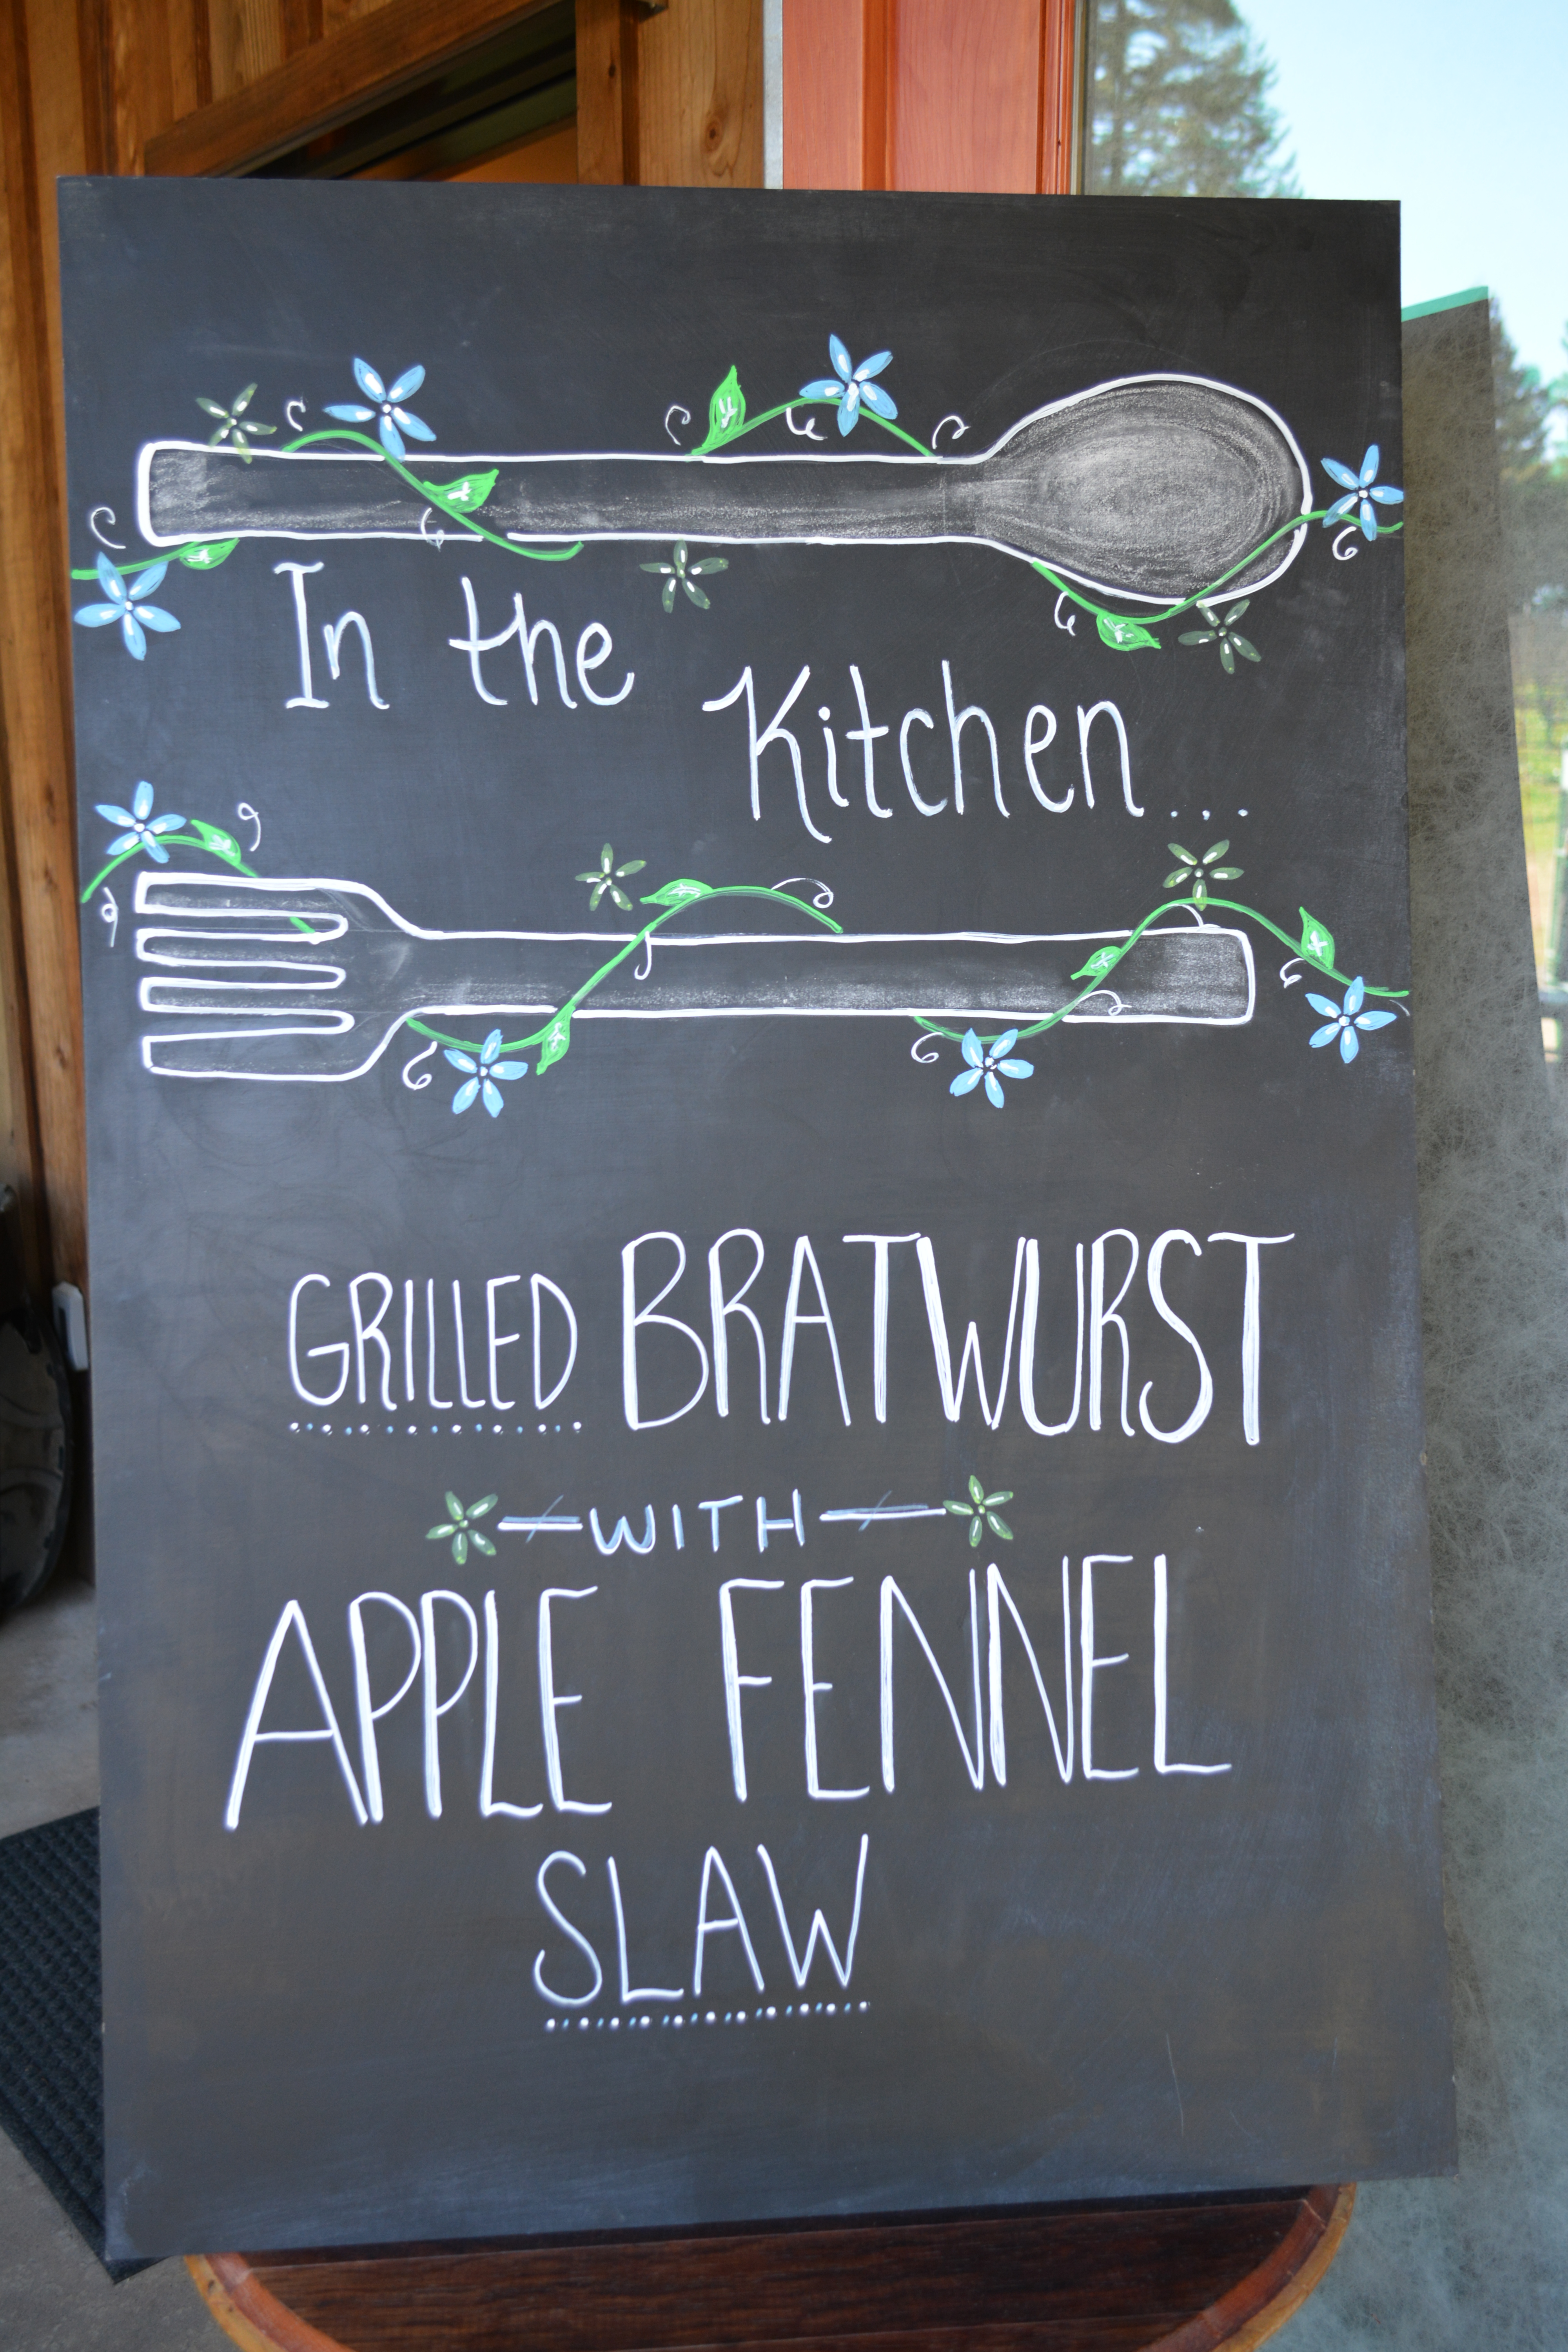 In the
Kitchen...
GRILLED BRATWURST
WITH
APPLE FENNEL
SLAW